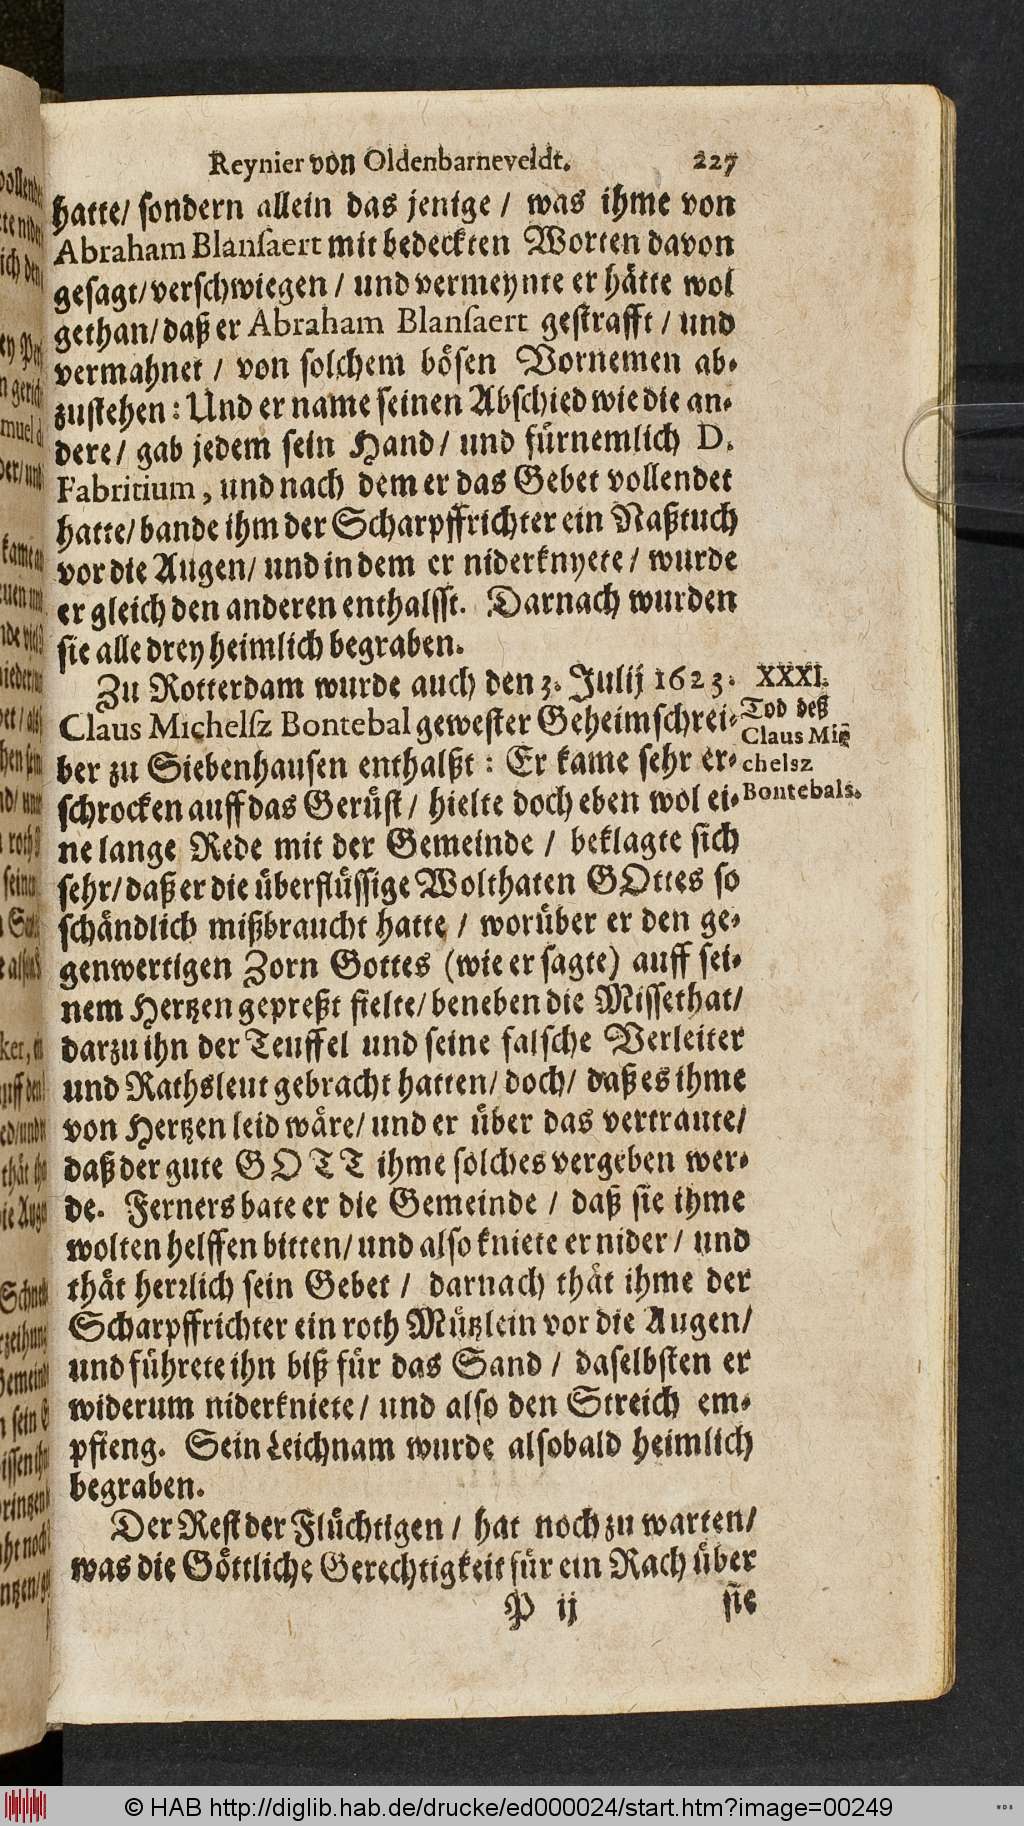 Reynier von Oldenbarneveldt. 227
hatte/ sondern allein das jenige / was ihme von
Abraham Blansaert mit bedeckten Worten davon
gesagt/ verschwiegen / und vermeynte er hätte wol
gethan/ daß er Abraham Blansaert gestrafft / und
vermahnet / von solchem bösen Vornemen ab-
zustehen: Und er name seinen Abschied wie die an-
dere/ gab jedem sein Hand/ und fürnemlich D.
Fabritium, und nach dem er das Gebet vollendet
hatte/ bande ihm der Scharpffrichter ein Naßtuch
vor die Augen/ und in dem er niderknyete/ wurde
er gleich den anderen enthalsst. Darnach wurden
sie alle drey heimlich begraben.
Zu Rotterdam wurde auch den 3. Julij 1623.
Claus Michelsz Bontebal gewester Geheimschrei-
ber zu Siebenhausen enthalßt: Er kame sehr er-
schrocken auff das Gerüst/ hielte doch eben wol ei-
ne lange Rede mit der Gemeinde / beklagte sich
sehr/ daß er die überflüssige Wolthaten GOttes so
schändlich mißbraucht hatte / worüber er den ge-
genwertigen Zorn Gottes (wie er sagte) auff sei-
nem Hertzen gepreßt fielte/ beneben die Missethat/
darzu ihn der Teuffel und seine falsche Verleiter
und Rathsleut gebracht hatten/ doch/ daß es ihme
von Hertzen leid wäre/ und er über das vertraute/
daß der gute GOTT ihme solches vergeben wer-
de. Ferners bate er die Gemeinde / daß sie ihme
wolten helffen bitten/ und also kniete er nider/ und
thät herzlich sein Gebet / darnach thät ihme der
Scharpffrichter ein roth Mützlein vor die Augen/
und führete ihn biß für das Sand / daselbsten er
widerum niderkniete/ und also den Streich em-
pfieng. Sein Leichnam wurde alsobald heimlich
begraben.
Der Rest der Flüchtigen / hat noch zu warten/
was die Göttliche Gerechtigkeit für ein Rach über
P ij sie
XXXI.
Tod deß
Claus Mi-
chelsz
Bontebals.
© HAB http://diglib.hab.de/drucke/ed000024/start.htm?image=00249